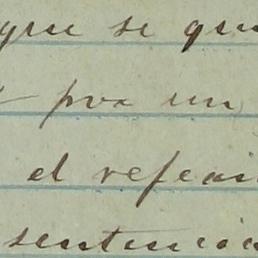 que se que
por un
el refe
sentencia